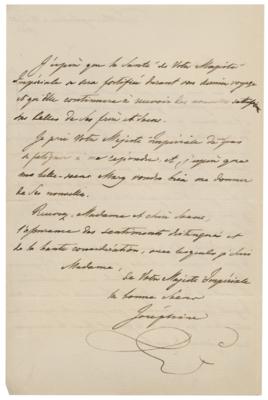 J'espère que la Santé de Votre Majesté
Impériale a sera fortifié durant son dernier voyage
et qu'Elle continuera à recevoir les nouvelles
des Celles de Ses frère et Sœur.
Je prie Votre Majesté Impériale de pas
se fatiguer à me répondre et, j'espère que
ma belle-sœur Mary voudra bien me donner
de Ses nouvelles.
Recevez, Madame et chère Sœur,
l'assurance des sentiments distingués et
de la haute considération, avec lesquels je suis
Madame,
de Votre Majesté Impériale
la bonne Sœur
Joséphine